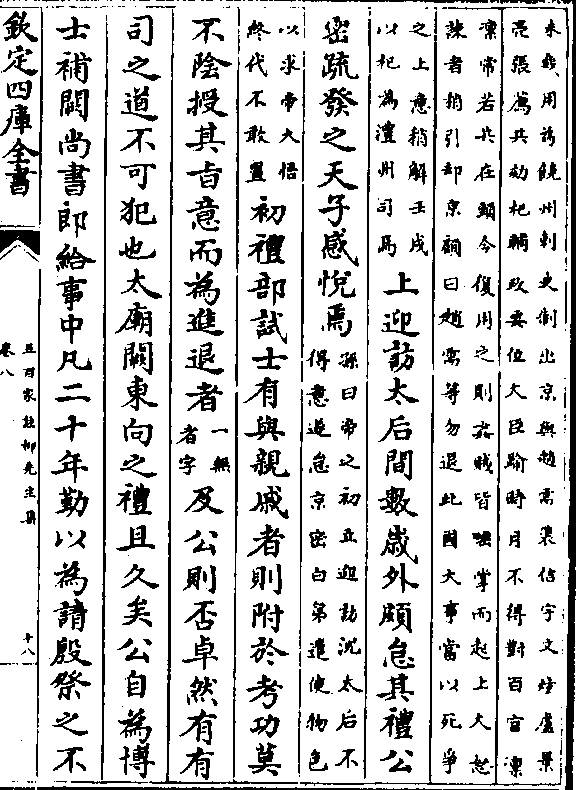 未㡬用為饒州刺史制出京與趙需裴佶宇文炫盧景
亮張薦共劾杞輔政要位大臣踰時月不得對百官凜
凜常若兵在頸今復用之則姦賊皆唾掌而起上大怒
諫者稍引却京顧曰趙需等勿退此國大事當以死爭
之上意稍解壬戌
以杞為澧州司馬
上迎訪太后間數歳外頗怠其禮公
密疏發之天子感悦焉
孫曰帝之初立迎訪沈太后不
得意遂怠京密白第遣使物色
以求帝大悟
終代不敢置
初禮部試士有與親戚者則附於考功莫
不陰授其㫖意而為進退者
一無
者字
及公則否卓然有有
司之道不可犯也太廟闕東向之禮且久矣公自為博
士補闕尚書郎給事中凡二十年勤以為請殷祭之不
欽定四庫全書
五百家註柳先生集
卷八
十八